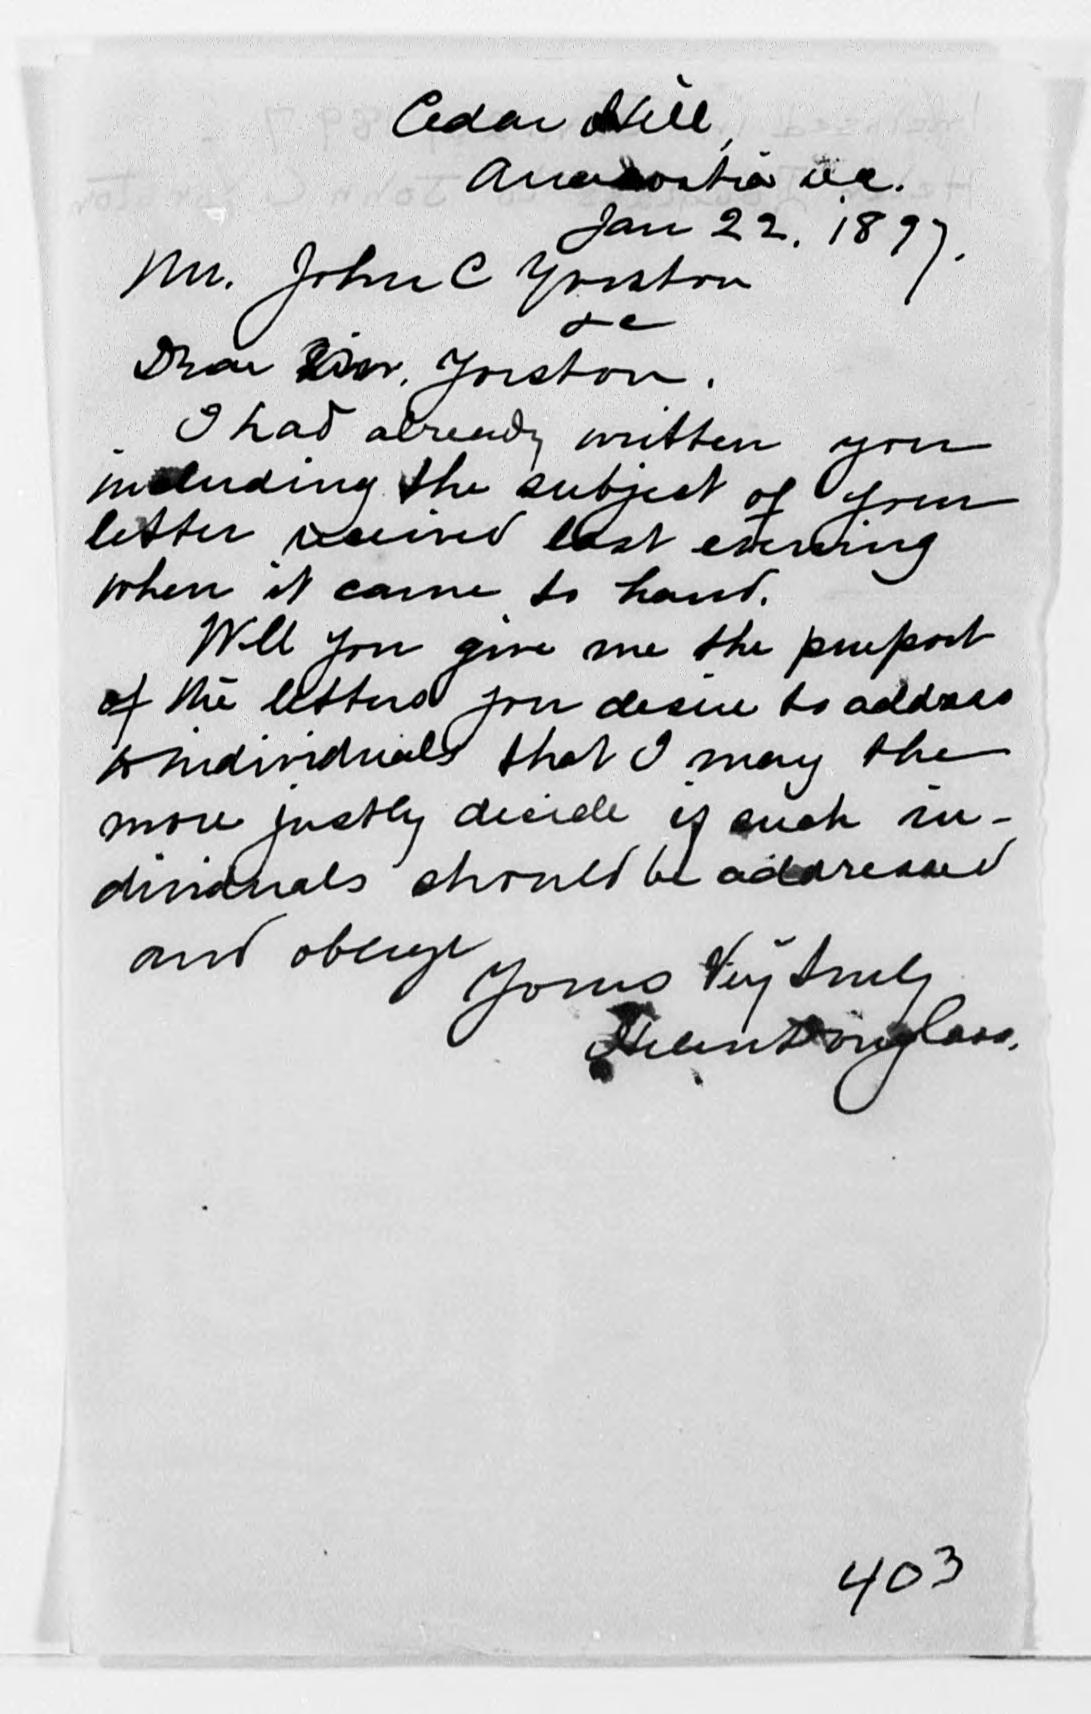 Cedar Hill,
Anacostia D.C.
Jan 22, 1897.
Mr. John C Yorston
& c
Dear Sir, Yorston.
I had already written you
including the subject of your
letter received last evening
when it came to hand.
Will you give me the purport
of the letters you desire to address
to individuals that I may the
more justly decide if such in-
dividuals should be addressed
and oblige
Yours Very truly
Helen Douglass.
403